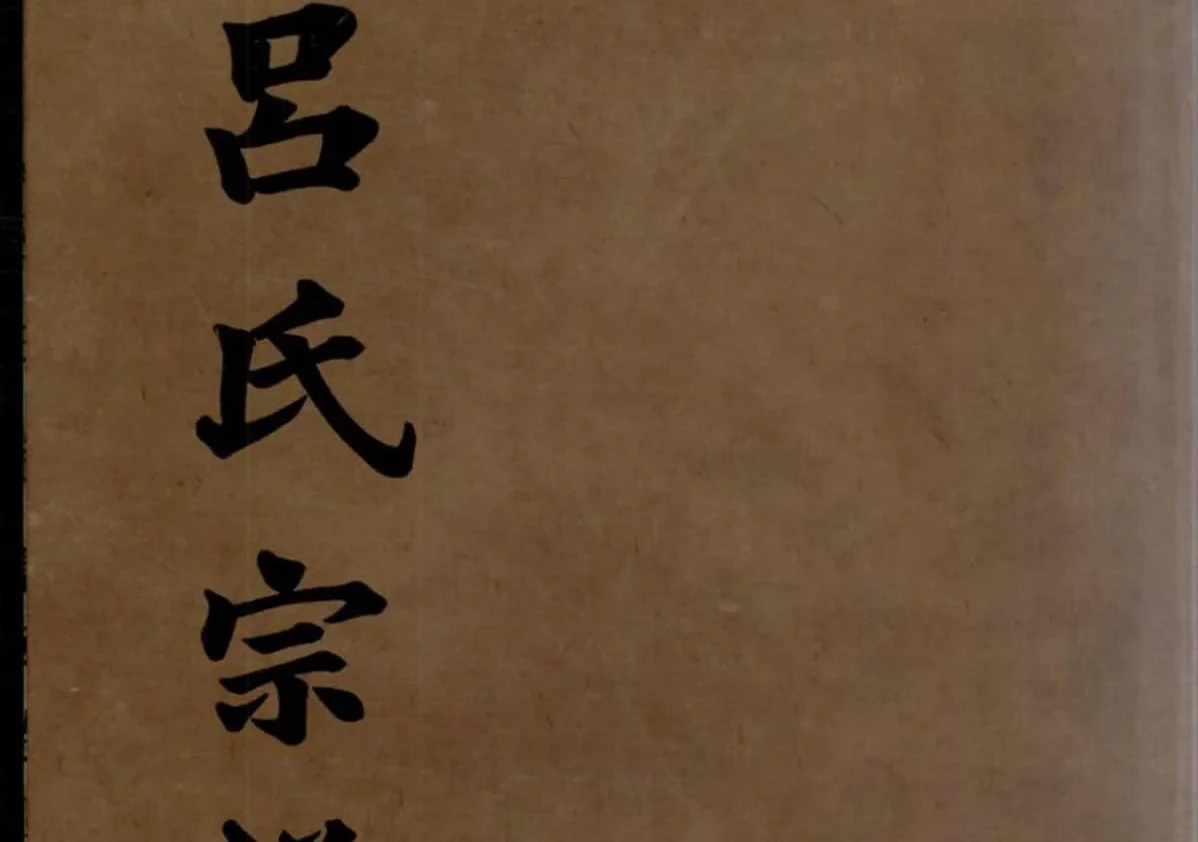 呂氏宗